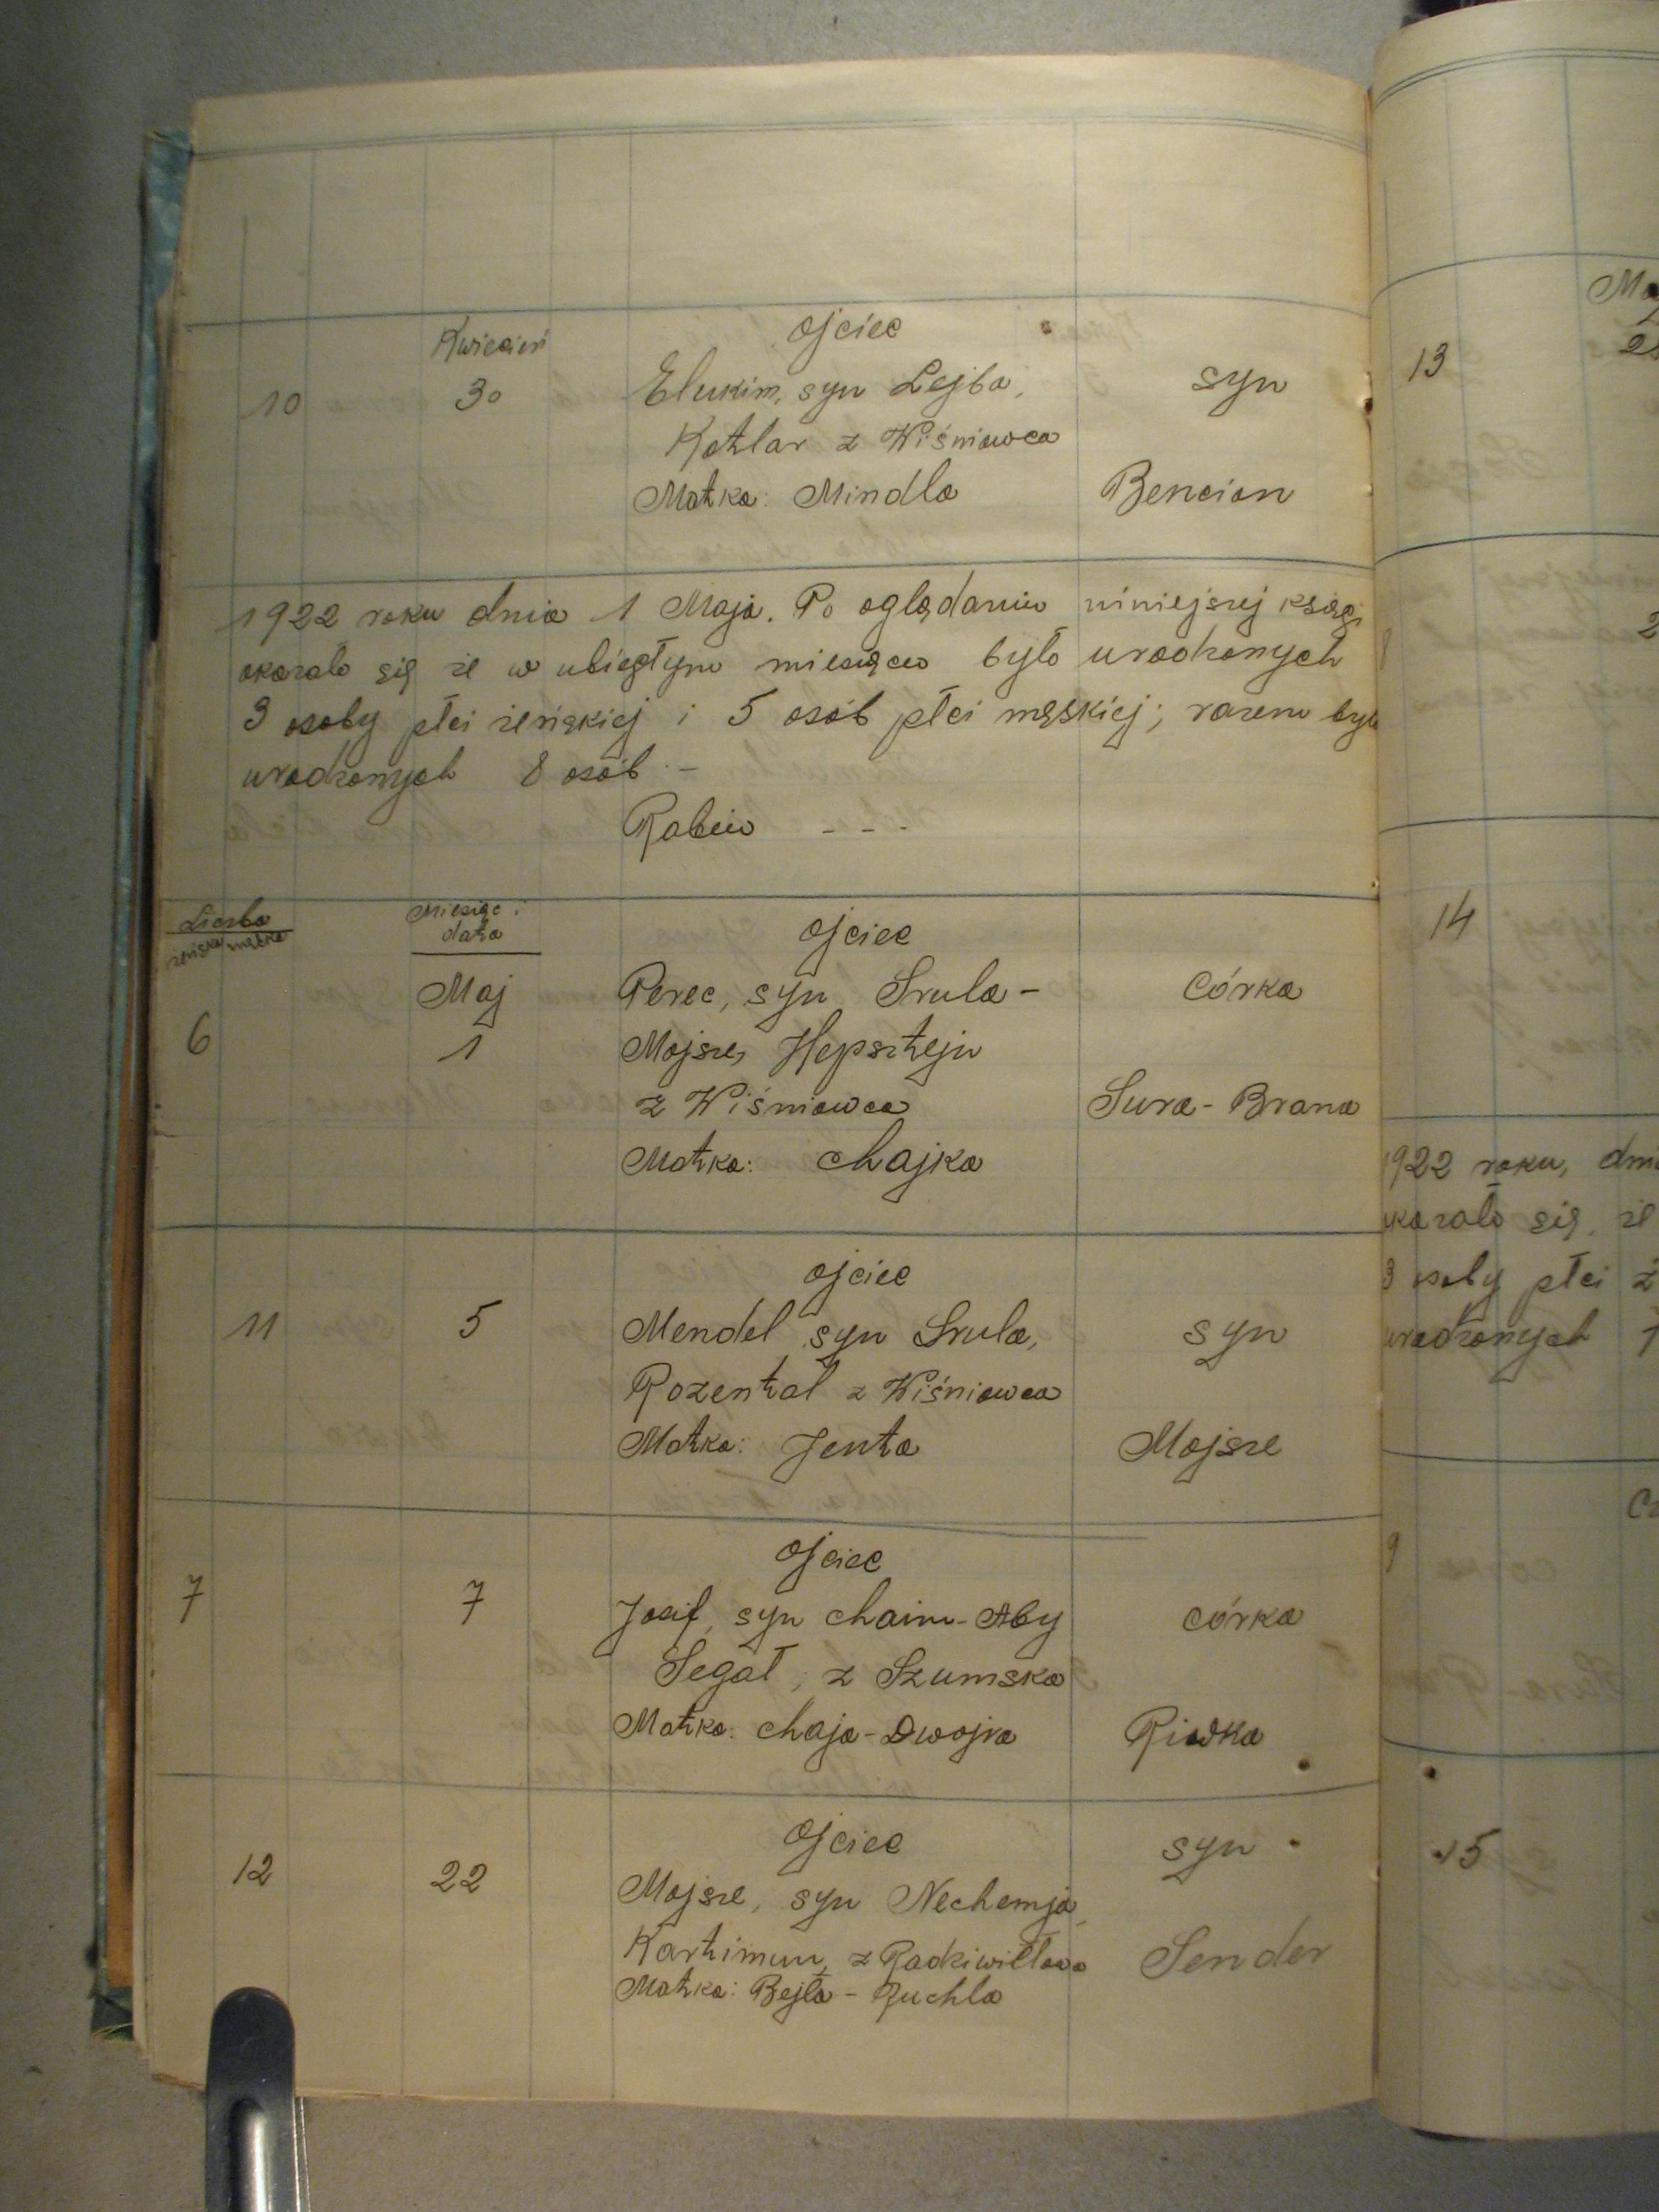 Kwiecień
ojciec
10 30 Elukim, syn Lejba, syn
Kotlar z Wiśniowca
Matka: Mindla Bencian
1922 roku dnia 1 Maja. Po oglądaniu niniejszej księgi
okazało się że w ubiegłym miesiącu było urodzonych
3 osoby płci żeńskiej i 5 osób płci męskiej; razem było
urodzonych 8 osób. –
Rabin - - -
Liczba
żeńska męska
Miesiąc i
data
ojciec
Maj Perec, syn Srula- córka
6 1 Mojsze, Hepsztejn
z Wiśniowca Sura-Brana
Matka: Chajka
ojciec
11 5 Mendel syn Srula, syn
Rozental z Wiśniowca
Matka: Jenta Mojsze
ojciec
7 7 Josif, syn Chaim-Aby córka
Segał, z Szumska
Matka: Chaja-Dwojra Riwka
ojciec syn
12 22 Mojsze, syn Nechemja,
z Radziwiłłowa Sender
Matka: Bejla-Ruchla
13
14
1922 roku,
okazało się, że
3 osoby płci
urodzonych
9
15